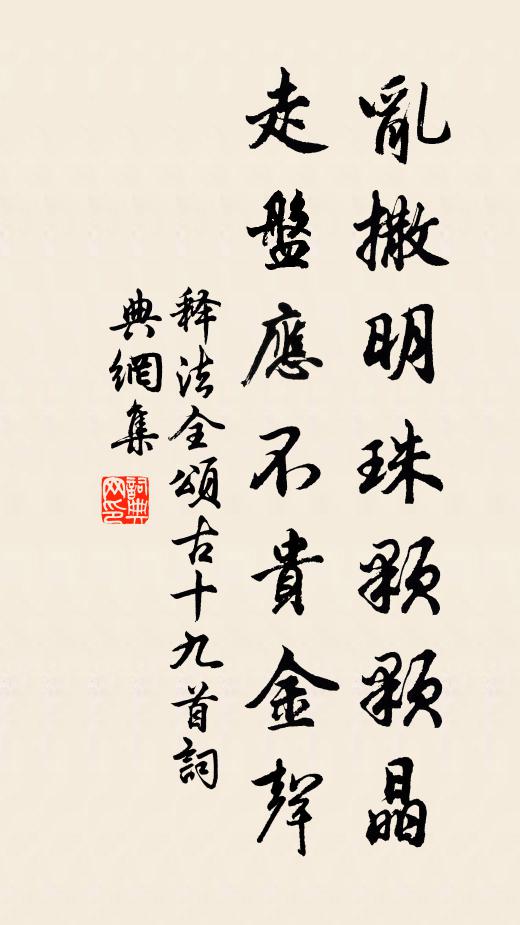 亂撒明珠顆顆晶
走盤應不貴金聲
释法全頌古十九首詞
典網集
詞典網印